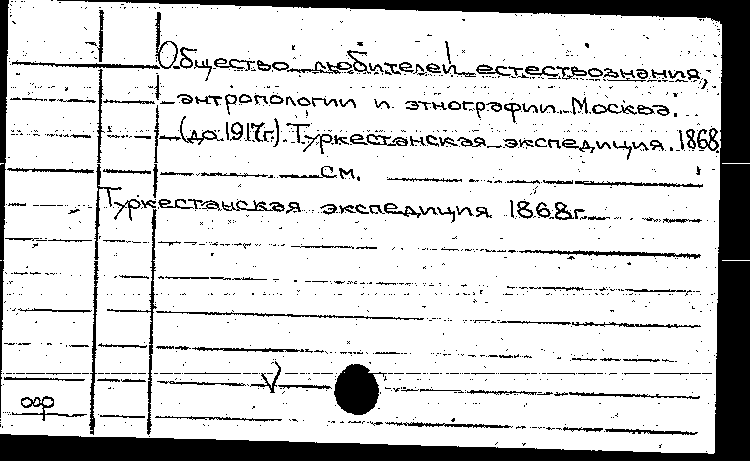 Общество любителей естествознания,
антропологии и этнографии. Москва.
(до 1917г.) Туркестанская экспедиция. 1868.
см.
Туркестанская экспедиция 1868г.